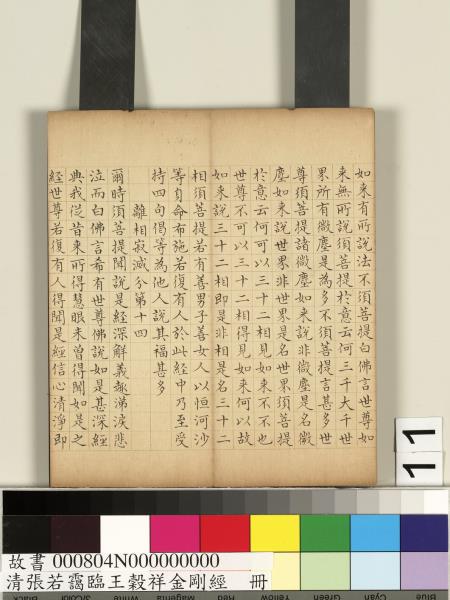 如來有所說法不須菩提白佛言世尊如
來無所說須菩提於意云何三千大千世
界所有微塵是為多不須菩提言甚多世
尊須菩提諸微塵如來說非微塵是名微
塵如來說世界非世界是名世界須菩提
於意云何可以三十二相見如來不不也
世尊不可以三十二相得見如來何以故
如來說三十二相即是非相是名三十二
相須菩提若有善男子善女人以恒河沙
等身命布施若復有人於此經中乃至受
持四句偈等為他人說其福甚多
離相寂滅分第十四
爾時須菩提聞說是經深解義趣涕淚悲
泣而白佛言希有世尊佛說如是甚深經
典我從昔來所得慧眼未曾得聞如是之
經世尊若復有人得聞是經信心清淨即
11
故書 000804N000000000
清張若靄臨王穀祥金剛經 冊
Black
3/Color
White
Magenta
Red
Yellow
Green
Cyan
Blue